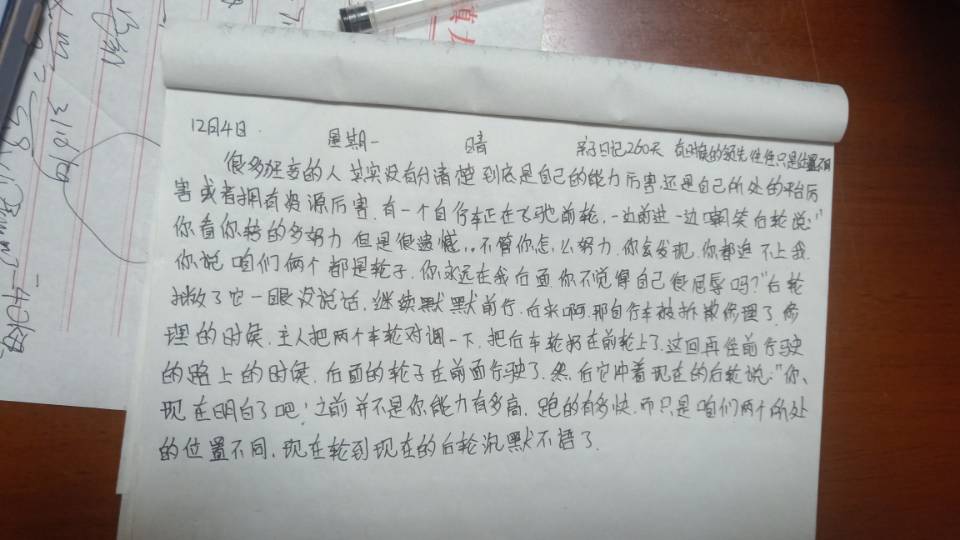 12月4日. 星期一 晴 亲子日记260天 有时候的领先往往只是位置不同
很多狂妄的人 其实没有分清楚 到底是自己的能力厉害 还是自己所处的平台厉
害 或者拥有资源厉害. 有一个自行车正在飞驰 前轮, 一边前进一边嘲笑后轮说:"
你看你转的多努力 但是很遗憾.. 不管你怎么努力. 你会发现. 你都追不上我.
你说 咱们俩个 都是轮子. 你永远在我后面 你不觉得自己很屈辱吗?"后轮
它一眼没说话. 继续默默前行. 后来啊. 那自行车被拆散修理了. 修
理的时候. 主人把两个车轮对调一下. 把后车轮 在前轮上了. 这回再往前行驶
的路上的时候. 后面的轮子在前面行驶了. 然后它冲着现在的后轮说:"你、
现在明白了吧! 之前并不是你能力有多高. 跑的有多快. 而只是咱们两个所处
的位置不同. 现在轮到现在的后轮沉默不语了.